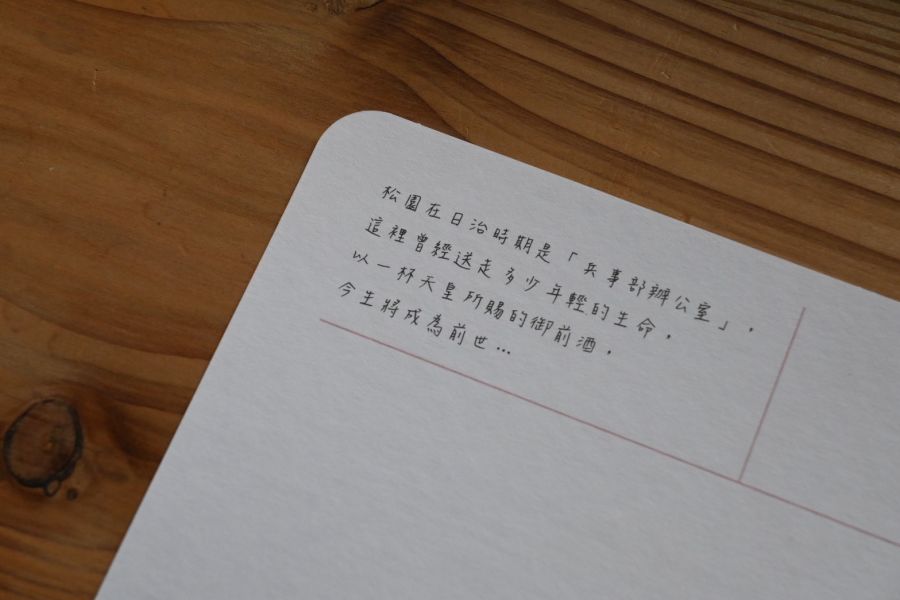 松園在日治時期是「兵事部辦公室」，
這裡曾經送走多少年輕的生命，
以一杯天皇所賜的御前酒，
今生將成為前世…